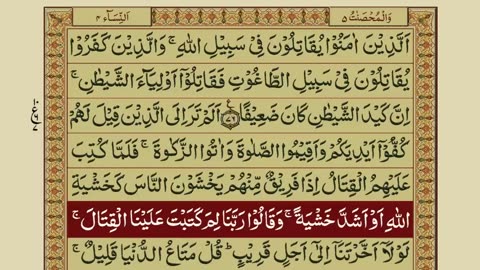 وَالْمُحْصَنٰتُ ۵
اَلنِّسَآء ۴
اَلَّذِيْنَ اٰمَنُوْا يُقَاتِلُوْنَ فِيْ سَبِيْلِ اللّٰهِ ۚ وَالَّذِيْنَ كَفَرُوْا
يُقَاتِلُوْنَ فِيْ سَبِيْلِ الطَّاغُوْتِ فَقَاتِلُوْٓا اَوْلِيَآءَ الشَّيْطٰنِ ۚ
اِنَّ كَيْدَ الشَّيْطٰنِ كَانَ ضَعِيْفًا ۷۶ اَلَمْ تَرَ اِلَى الَّذِيْنَ قِيْلَ لَهُمْ
كُفُّوْٓا اَيْدِيَكُمْ وَاَقِيْمُوا الصَّلٰوةَ وَاٰتُوا الزَّكٰوةَ ۚ فَلَمَّا كُتِبَ
عَلَيْهِمُ الْقِتَالُ اِذَا فَرِيْقٌ مِّنْهُمْ يَخْشَوْنَ النَّاسَ كَخَشْيَةِ
اللّٰهِ اَوْ اَشَدَّ خَشْيَةً ۚ وَقَالُوْا رَبَّنَا لِمَ كَتَبْتَ عَلَيْنَا الْقِتَالَ ۚ
لَوْلَآ اَخَّرْتَنَآ اِلٰٓى اَجَلٍ قَرِيْبٍ ؕ قُلْ مَتَاعُ الدُّنْيَا قَلِيْلٌ ۚ